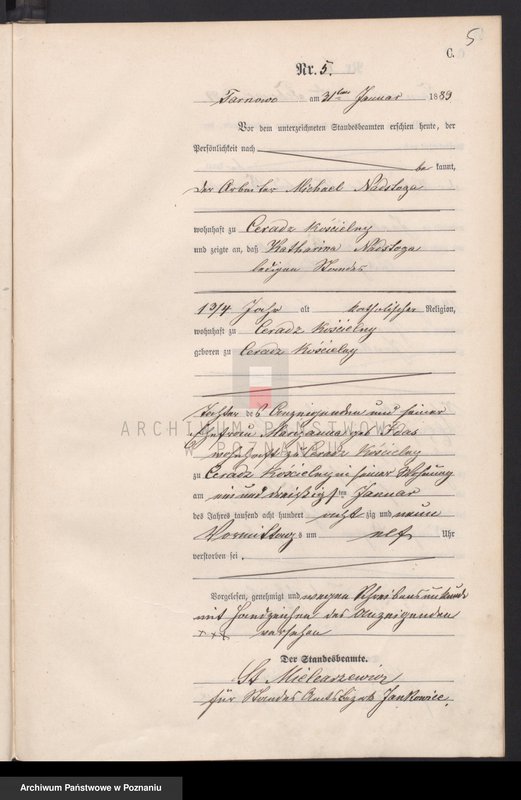 5
C.
Nr. 5.
Tarnowo am 31ten Januar 1889
Vor dem unterzeichneten Standesbeamten erschien heute, der
Persönlichkeit nach
be kannt,
der Arbeiter Michael Nadstoga
wohnhaft zu Ceradz Kościelny
und zeigte an, daß Katharina Nadstoga
ledigen Standes
1 3/4 Jahr alt katholischer Religion,
wohnhaft zu Ceradz Kościelny
geboren zu Ceradz Kościelny
Tochter des Anzeigenden und seiner
Ehefrau Marianna geb.
wohnhaft zu Ceradz Kościelny
zu Ceradz Kościelny in seiner Wohnung
am ein und dreißigsten Januar
des Jahres tausend acht hundert acht zig und neun
Vormittags um elf Uhr
verstorben sei.
Vorgelesen, genehmigt und wegen Schreibensunkunde
mit Handzeichen des Anzeigenden
xxx versehen
Der Standesbeamte.
St Mielcarzewicz
für Standes Amtsbezirk Jankowice.
ARCHIWUM PAŃSTWOWE
W POZNANIU
Archiwum Państwowe w Poznaniu